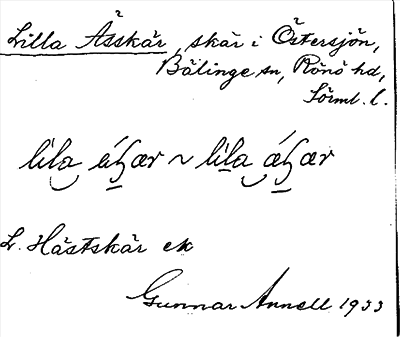 Lilla Åsskär, skär i Östersjön,
Bälinge sn, Rönö hd,
Sörml. l.
L. Hästskär ek
Gunnar Annell 1933